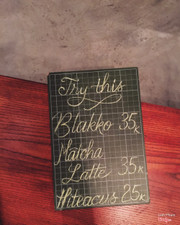 Try this
Blakko 35k
Matcha
Latte 35k
Hiteacus 25k